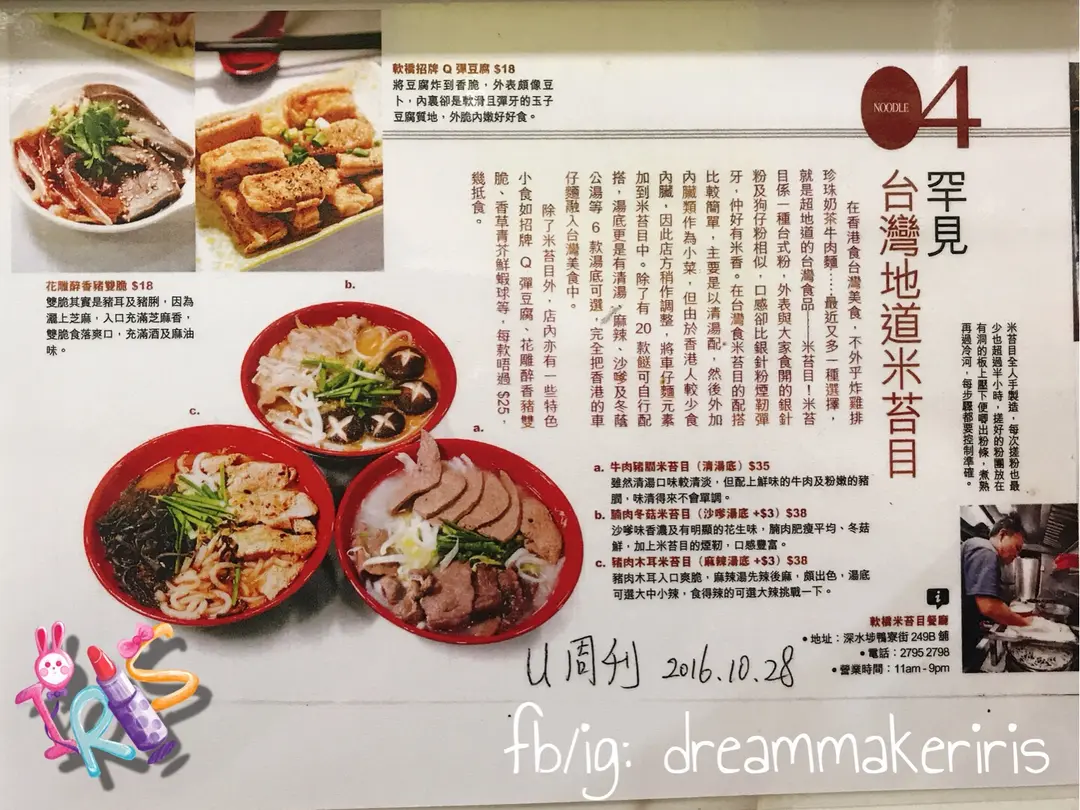 軟橋招牌 Q 彈豆腐 $18
將豆腐炸到香脆，外表頗像豆
卜，內裏卻是軟滑且彈牙的玉子
豆腐質地，外脆內嫩好好食。
NOODLE
04
罕見
台灣地道米苔目
米苔目全人手製造，每次搓粉也最
少也超過半小時，搓好的粉團放在
有洞的板上壓下便嘥出粉條，煮熟
再過冷河，每步驟都要控制準確。
在香港食台灣美食，不外乎炸雞排
珍珠奶茶牛肉麵……最近又多一種選擇，
就是超地道的台灣食品——米苔目！米苔
目係一種台式粉，外表與大家食開的銀針
粉及狗仔粉相似，口感卻比銀針粉煙韌彈
牙，仲好有米香。在台灣食米苔目的配搭
比較簡單，主要是以清湯配，然後外加
內臟類作為小菜，但由於香港人較少食
內臟，因此店方稍作調整，將車仔麵元素
加到米苔目中。除了有 20 款餸可自行配
搭，湯底更是有清湯、麻辣、沙嗲及冬蔭
公湯等 6 款湯底可選，完全把香港的車
仔麵融入台灣美食中。
除了米苔目外，店內亦有一些特色
小食如招牌 Q 彈豆腐、花雕醉香豬雙
脆、香草青芥鮮蝦球等，每款唔過 $25，
幾抵食。
花雕醉香豬雙脆 $18
雙脆其實是豬耳及豬脷，因為
灑上芝麻，入口充滿芝麻香，
雙脆食落爽口，充滿酒及麻油
味。
b.
c.
a.
a. 牛肉豬膶米苔目（清湯底）$35
雖然清湯口味較清淡，但配上鮮味的牛肉及粉嫩的豬
膶，味清得來不會單調。
b. 腩肉冬菇米苔目（沙嗲湯底 +$3）$38
沙嗲味香濃及有明顯的花生味，腩肉肥瘦平均、冬菇
鮮，加上米苔目的煙韌，口感豐富。
c. 豬肉木耳米苔目（麻辣湯底 +$3）$38
豬肉木耳入口爽脆，麻辣湯先辣後麻，頗出色，湯底
可選大中小辣，食得辣的可選大辣挑戰一下。
i
軟橋米苔目餐廳
• 地址：深水埗鴨寮街 249B 舖
• 電話：2795 2798
• 營業時間：11am - 9pm
U 周刊 2016.10.28
IRIS
fb/ig: dreammakeriris